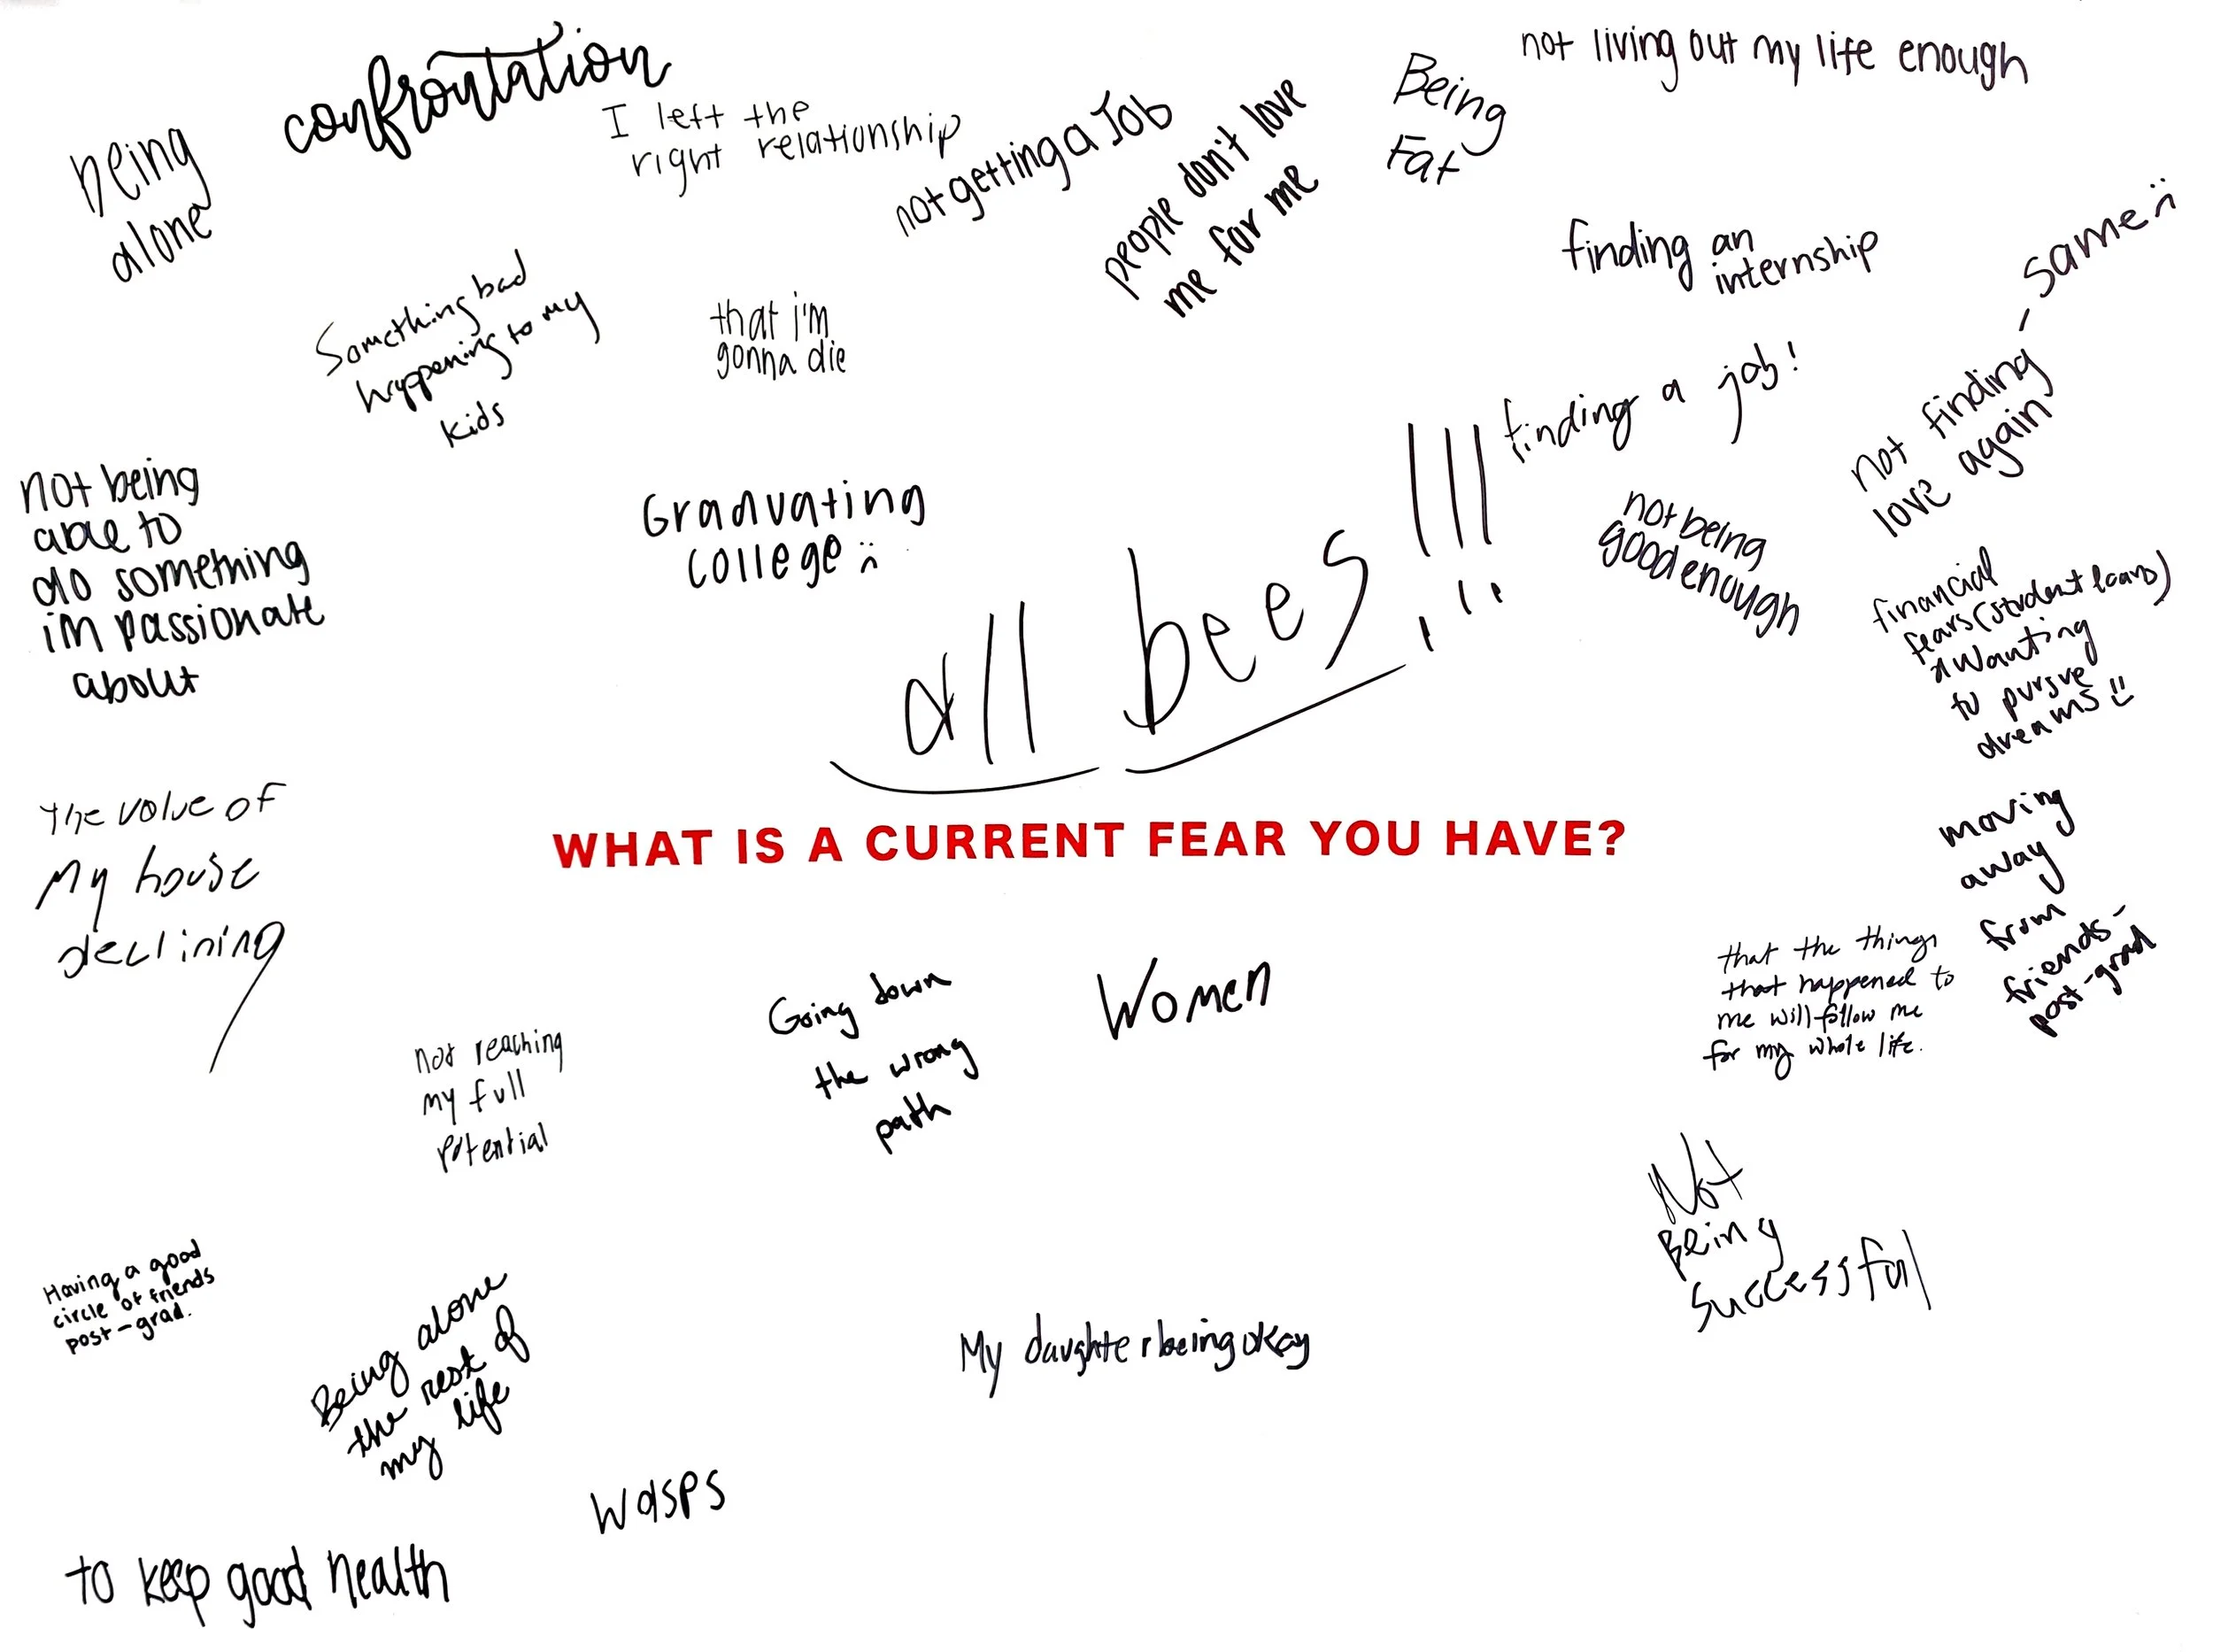 confrontation
being
alone
I left the
right relationship
not getting a Job
people don't love
me for me
Being
Fat
not living out my life enough
finding an
internship
- same :(
not finding
love again
Something bad
happening to my
kids
that i'm
gonna die
finding a job!
not being
able to
do something
im passionate
about
Graduating
college :(
all bees!!!
not being
good enough
financial
fears (student loans)
& wanting
to pursue
dreams :)
The value of
My house
declining
WHAT IS A CURRENT FEAR YOU HAVE?
moving
away
from
friends -
post-grad
that the things
that happened to
me will follow me
for my whole life.
Going down
the wrong
path
Women
not reaching
my full
potential
Not
Being
Successful
Having a good
circle of friends
post-grad.
Being alone
the rest of
my life
My daughter being okay
Wasps
to keep good health